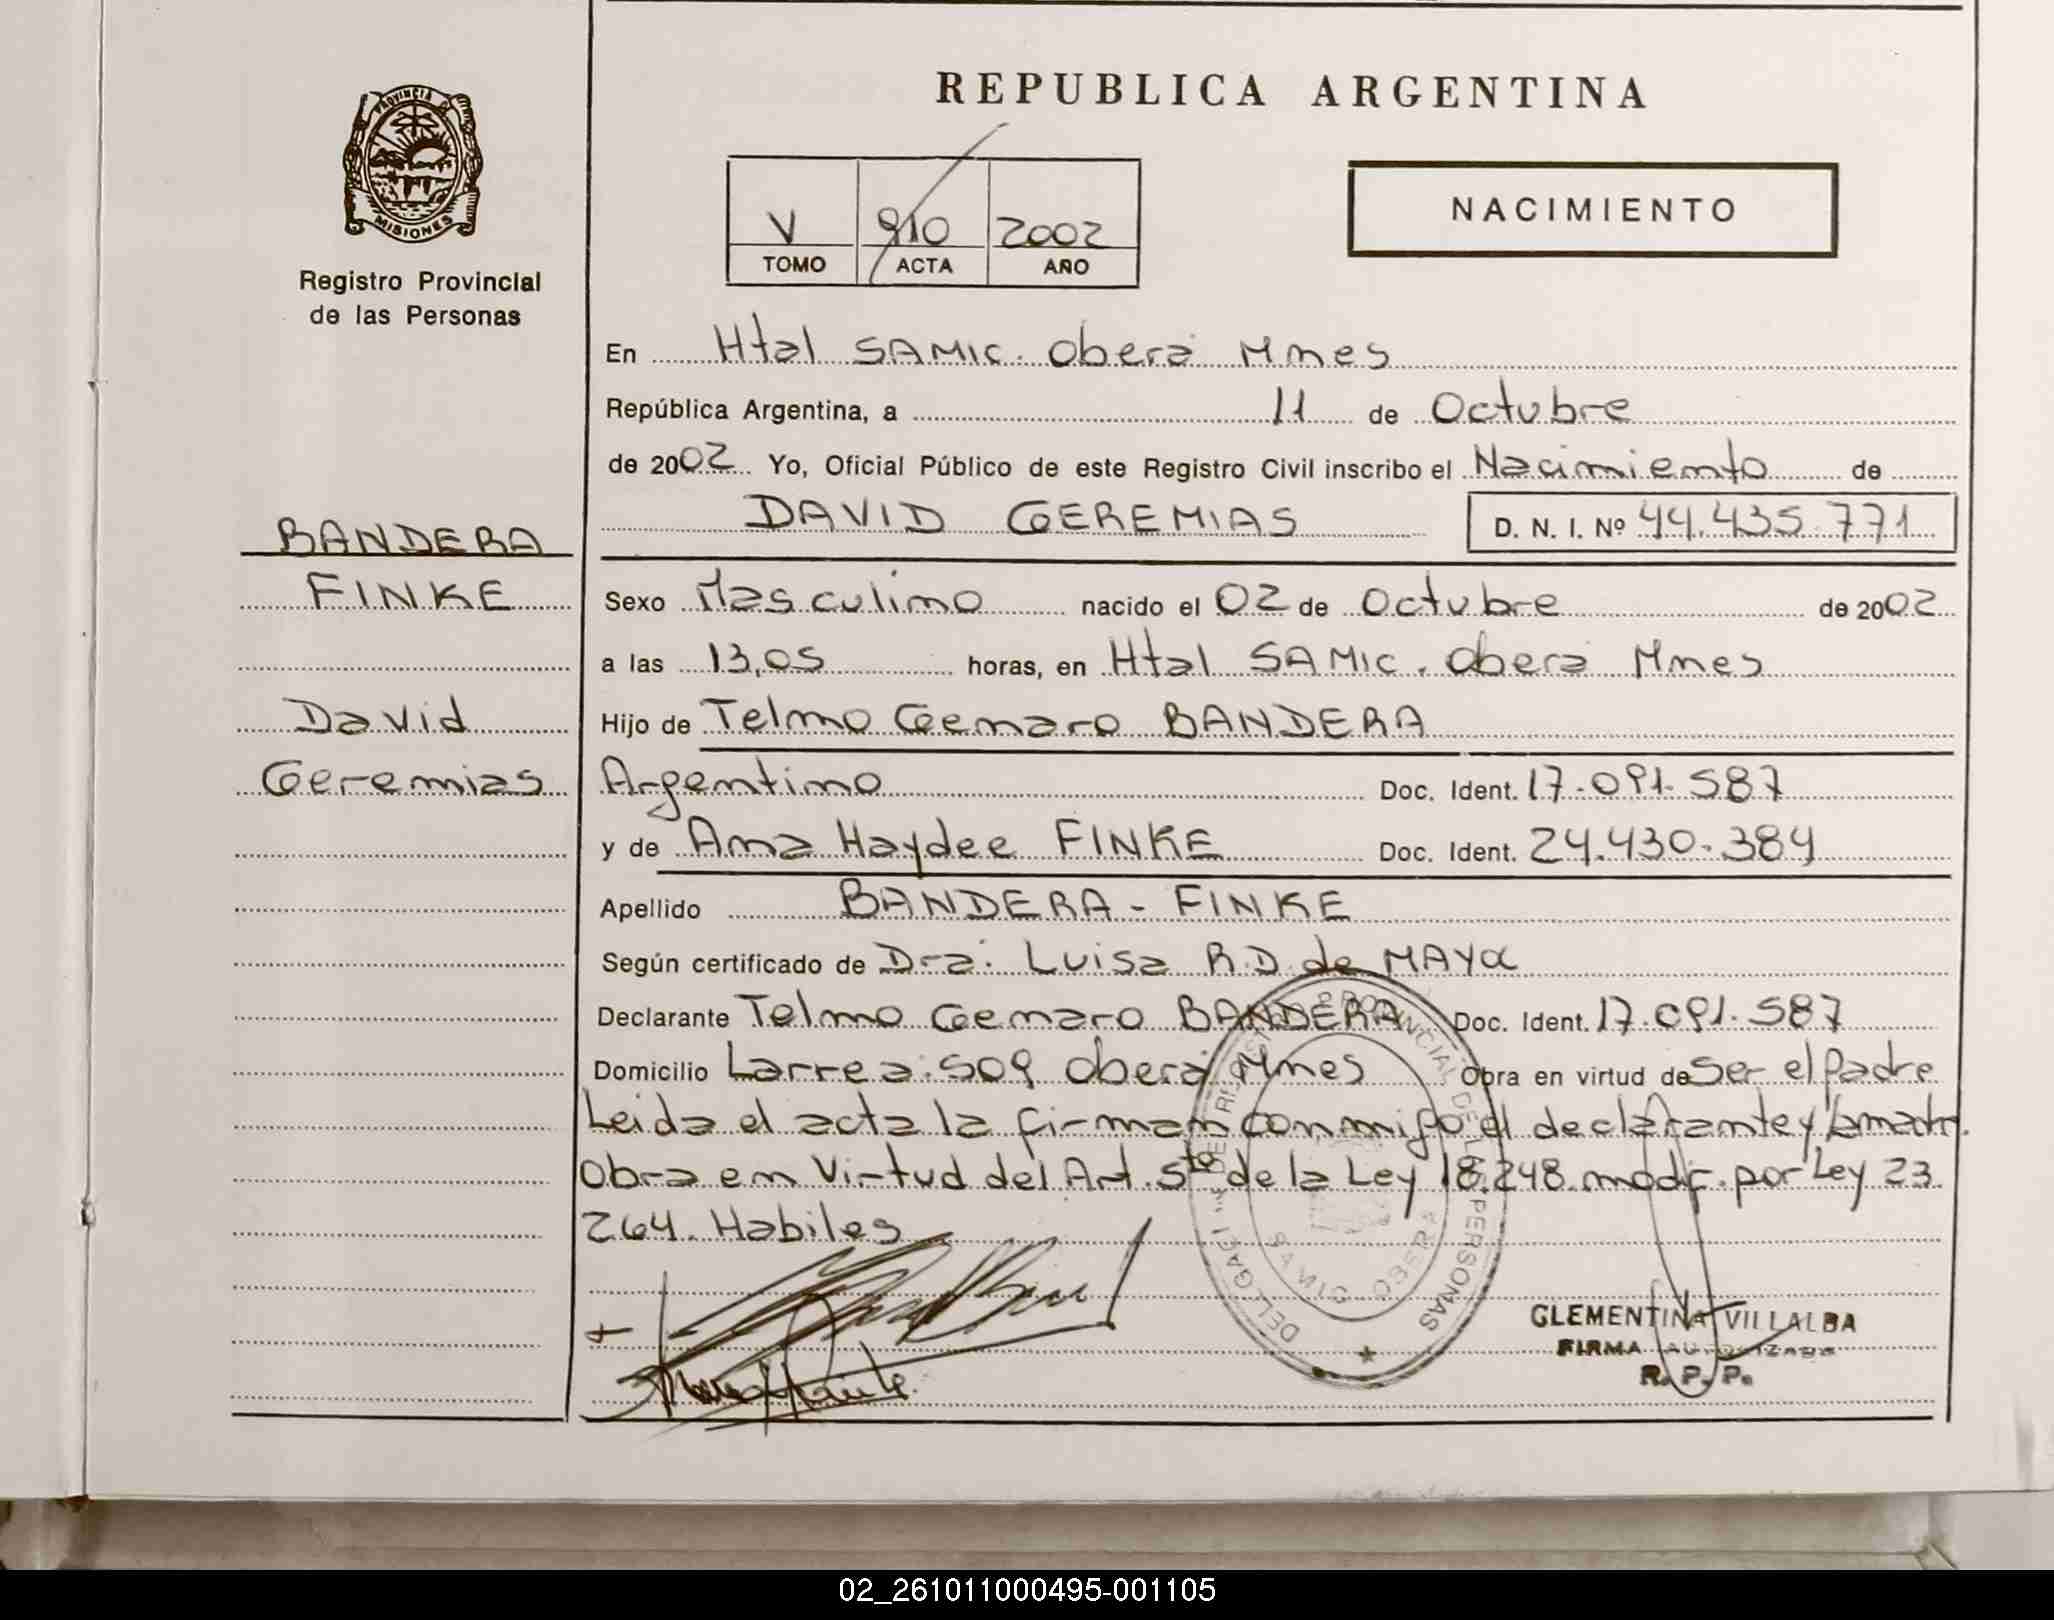 REPUBLICA ARGENTINA
PROVINCIA
MISIONES
Registro Provincial
de las Personas
V 910 2002
TOMO ACTA AÑO
NACIMIENTO
En Htal SAMIC. Oberá Mnes
República Argentina, a 11 de Octubre
de 2002 Yo, Oficial Público de este Registro Civil inscribo el Nacimiento de
DAVID GEREMIAS D. N. I. Nº 44.435.771
BANDERA
FINKE
David
Geremias
Sexo Masculino nacido el 02 de Octubre de 2002
a las 13,05 horas, en Htal SAMIC. Oberá Mnes
Hijo de Telmo Genaro BANDERA
Argentino Doc. Ident. 17.091.587
y de Ana Haydee FINKE Doc. Ident. 24.430.384
Apellido BANDERA - FINKE
Según certificado de Dra. Luisa R.D. de MAYA
Declarante Telmo Genaro BANDERA Doc. Ident. 17.091.587
Domicilio Larrea 509 Oberá Mnes Obra en virtud de Ser el Padre
Leida el acta la firman conmigo el declarante y la madre.
Obra en Virtud del Art. 5to de la Ley 18.248 modf. por Ley 23.
264. Habiles
REGISTRO PROVINCIAL DE LAS PERSONAS
SAMIC OBERA
CLEMENTINA VILLALBA
FIRMA AUTORIZADA
R. P. P.
02_261011000495-001105